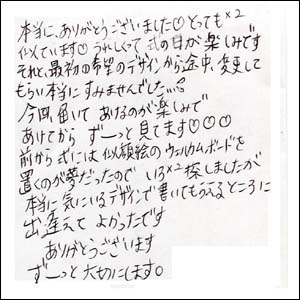 本当に、ありがとうございました♡とっても×2
似ています♡うれしくって式の日が楽しみです
それと、最初の希望のデザインから途中、変更して
もらい本当にすみませんでした...
今回、届いてあけるのが楽しみで
あけてからずーっと見てます♡♡♡
前から式には似顔絵のウェルカムボードを
置くのが夢だったのでいろ×2探しましたが
本当に気にいるデザインで書いてもらえるところに
出逢えてよかったです
ありがとうございます
ずーっと大切にします。